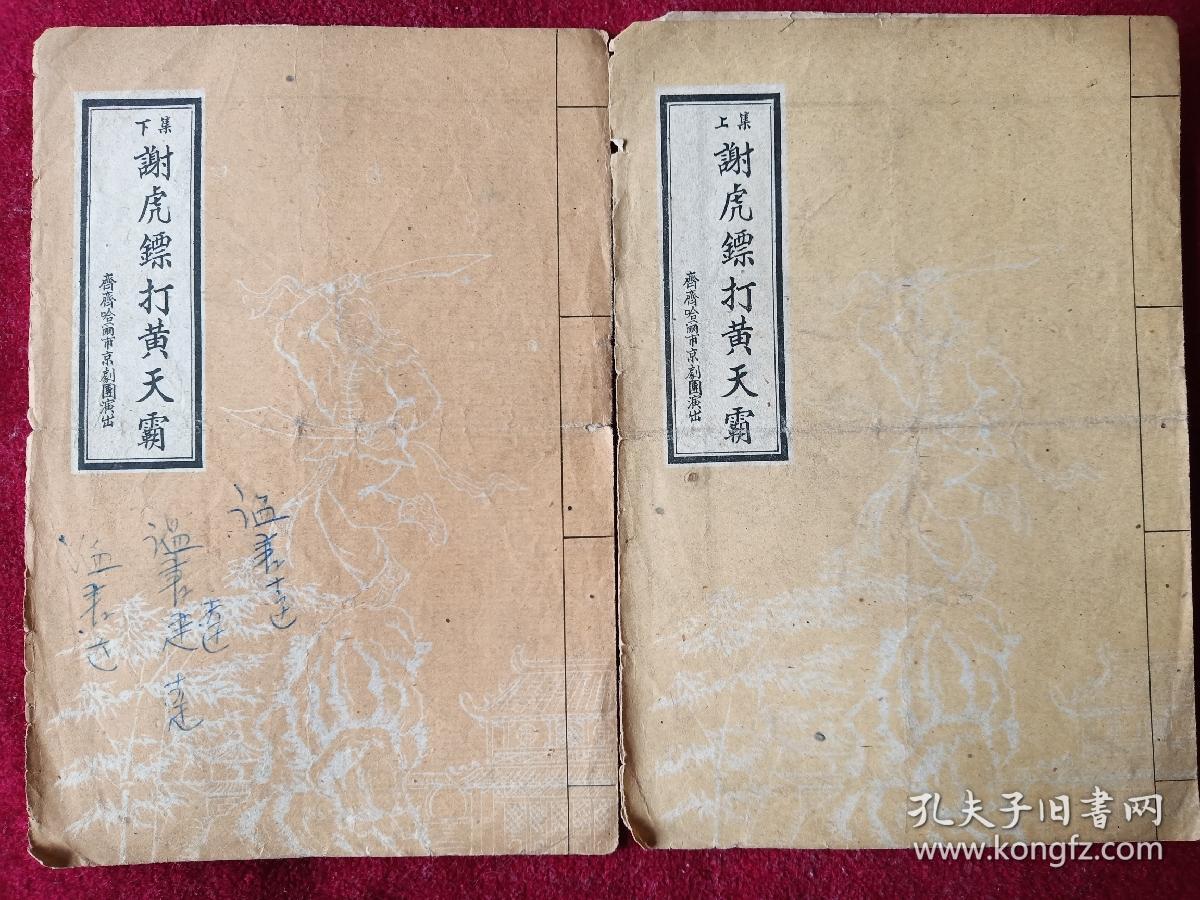 下集
謝虎鏢打黄天霸
齊齊哈爾市京劇團演出
上集
謝虎鏢打黄天霸
齊齊哈爾市京劇團演出
孔夫子旧书网
www.kongfz.com